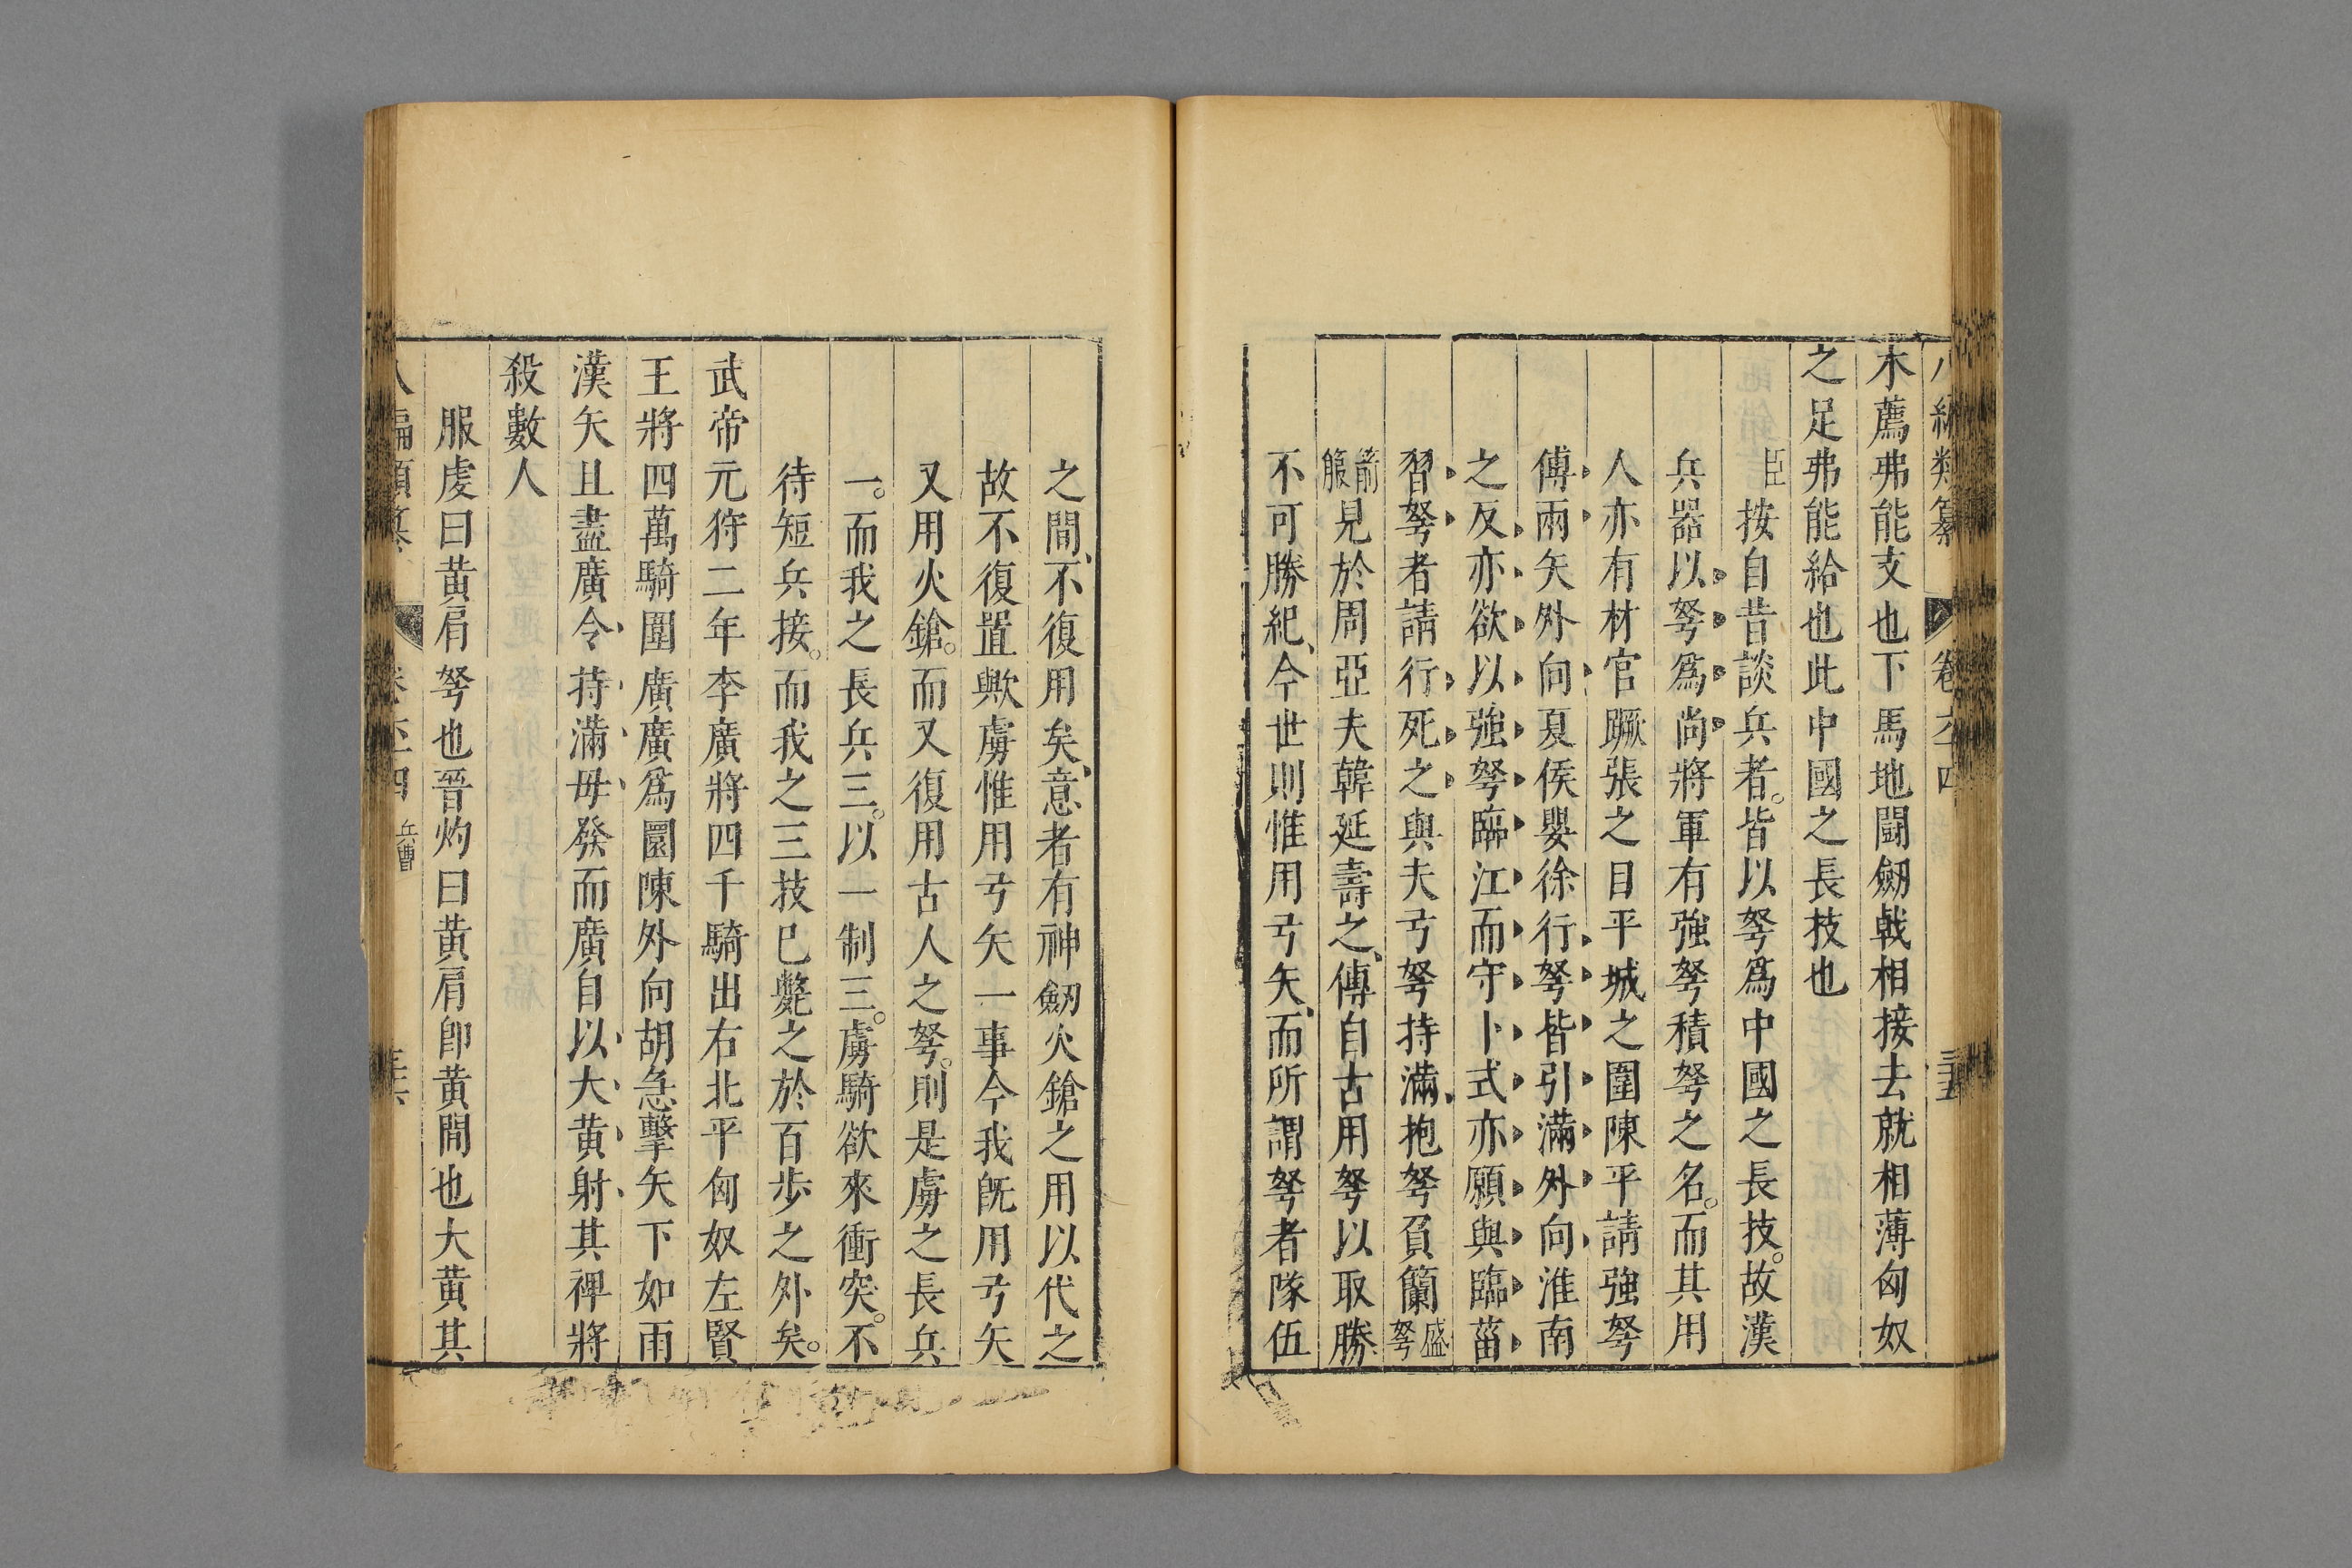 八編類纂 卷 三五
木薦弗能支也下馬地鬪劒戟相接去就相薄匈奴
之足弗能給也此中國之長技也
臣按自昔談兵者。皆以弩爲中國之長技。故漢
兵器以弩爲尚將軍有強弩積弩之名。而其用
人亦有材官蹶張之目平城之圍陳平請強弩
傅兩矢外向夏侯嬰徐行弩皆引滿外向淮南
之反亦欲以強弩臨江而守卜式亦願與臨菑
習弩者請行死之與夫弓弩持滿、抱弩負籣盛弩
箭服見於周亞夫韓延壽之、傳自古用弩以取勝
不可勝紀、今世則惟用弓矢、而所謂弩者隊伍
之間、不復用矣、意者有神劒火鎗之用以代之
故不復置歟虜惟用弓矢一事今我既用弓矢
又用火鎗。而又復用古人之弩。則是虜之長兵
一。而我之長兵三。以一制三。虜騎欲來衝突。不
待短兵接。而我之三技已斃之於百步之外矣。
武帝元狩二年李廣將四千騎出右北平匈奴左賢
王將四萬騎圍廣廣爲圜陳外向胡急擊矢下如雨
漢矢且盡廣令持滿毋發而廣自以大黃射其裨將
殺數人
服虔曰黃肩弩也晉灼曰黃肩卽黃閒也大黃其
八編類纂 兵曹